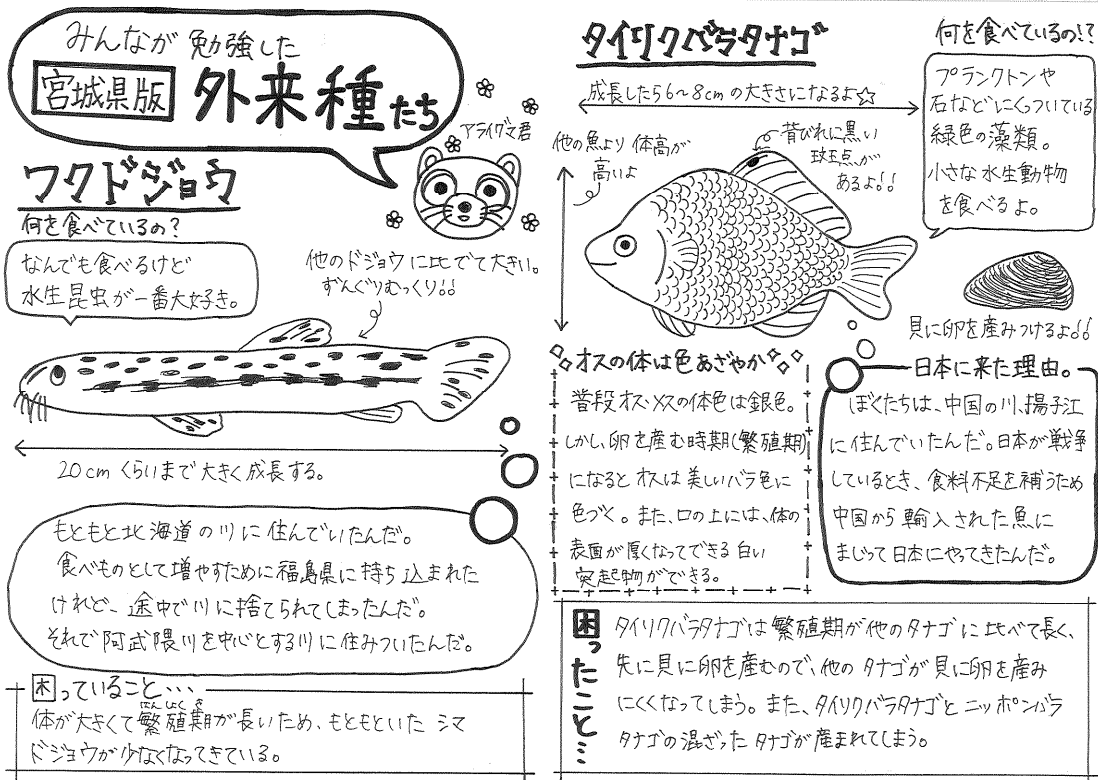 みんなが勉強した
宮城県版 外来種たち
アライグマ君
ワクドジョウ
何を食べているの?
なんでも食べるけど
水生昆虫が一番大好き。
他のドジョウに比べて大きい。
ずんぐりむっくり!!
20cmくらいまで大きく成長する。
もともと北海道の川に住んでいたんだ。
食べものとして増やすために福島県に持ち込まれた
けれど、途中で川に捨てられてしまったんだ。
それで阿武隈川を中心とする川に住みついたんだ。
困っていること…
はんしょくき
体が大きくて繁殖期が長いため、もともといたシマ
ドジョウが少なくなってきている。
タイリクバラタナゴ
成長したら6~8cmの大きさになるよ☆
他の魚より体高が
高いよ
背びれに黒い
斑点が
あるよ!!
何を食べているの!?
プランクトンや
石などにくっついている
緑色の藻類。
小さな水生動物
を食べるよ。
貝に卵を産みつけるよ!!
オスの体は色あざやか
普段オス・メスの体色は銀色。
しかし、卵を産む時期(繁殖期)
になるとオスは美しいバラ色に
色づく。また、口の上には、体の
表面が厚くなってできる白い
突起物ができる。
日本に来た理由。
ぼくたちは、中国の川、揚子江
に住んでいたんだ。日本が戦争
しているとき、食料不足を補うため
中国から輸入された魚に
まじって日本にやってきたんだ。
困ったこと…
タイリクバラタナゴは繁殖期が他のタナゴに比べて長く、
先に貝に卵を産むので、他のタナゴが貝に卵を産み
にくくなってしまう。また、タイリクバラタナゴとニッポンバラ
タナゴの混ざったタナゴが産まれてしまう。